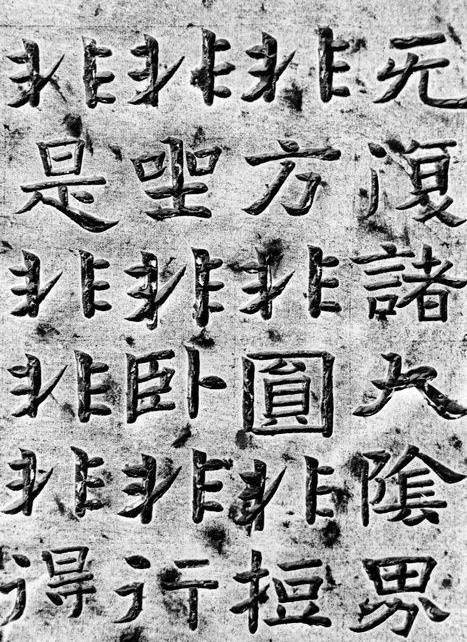 无復諸大陰界
非方非圓非短
非坐非卧非行
非是非非非得